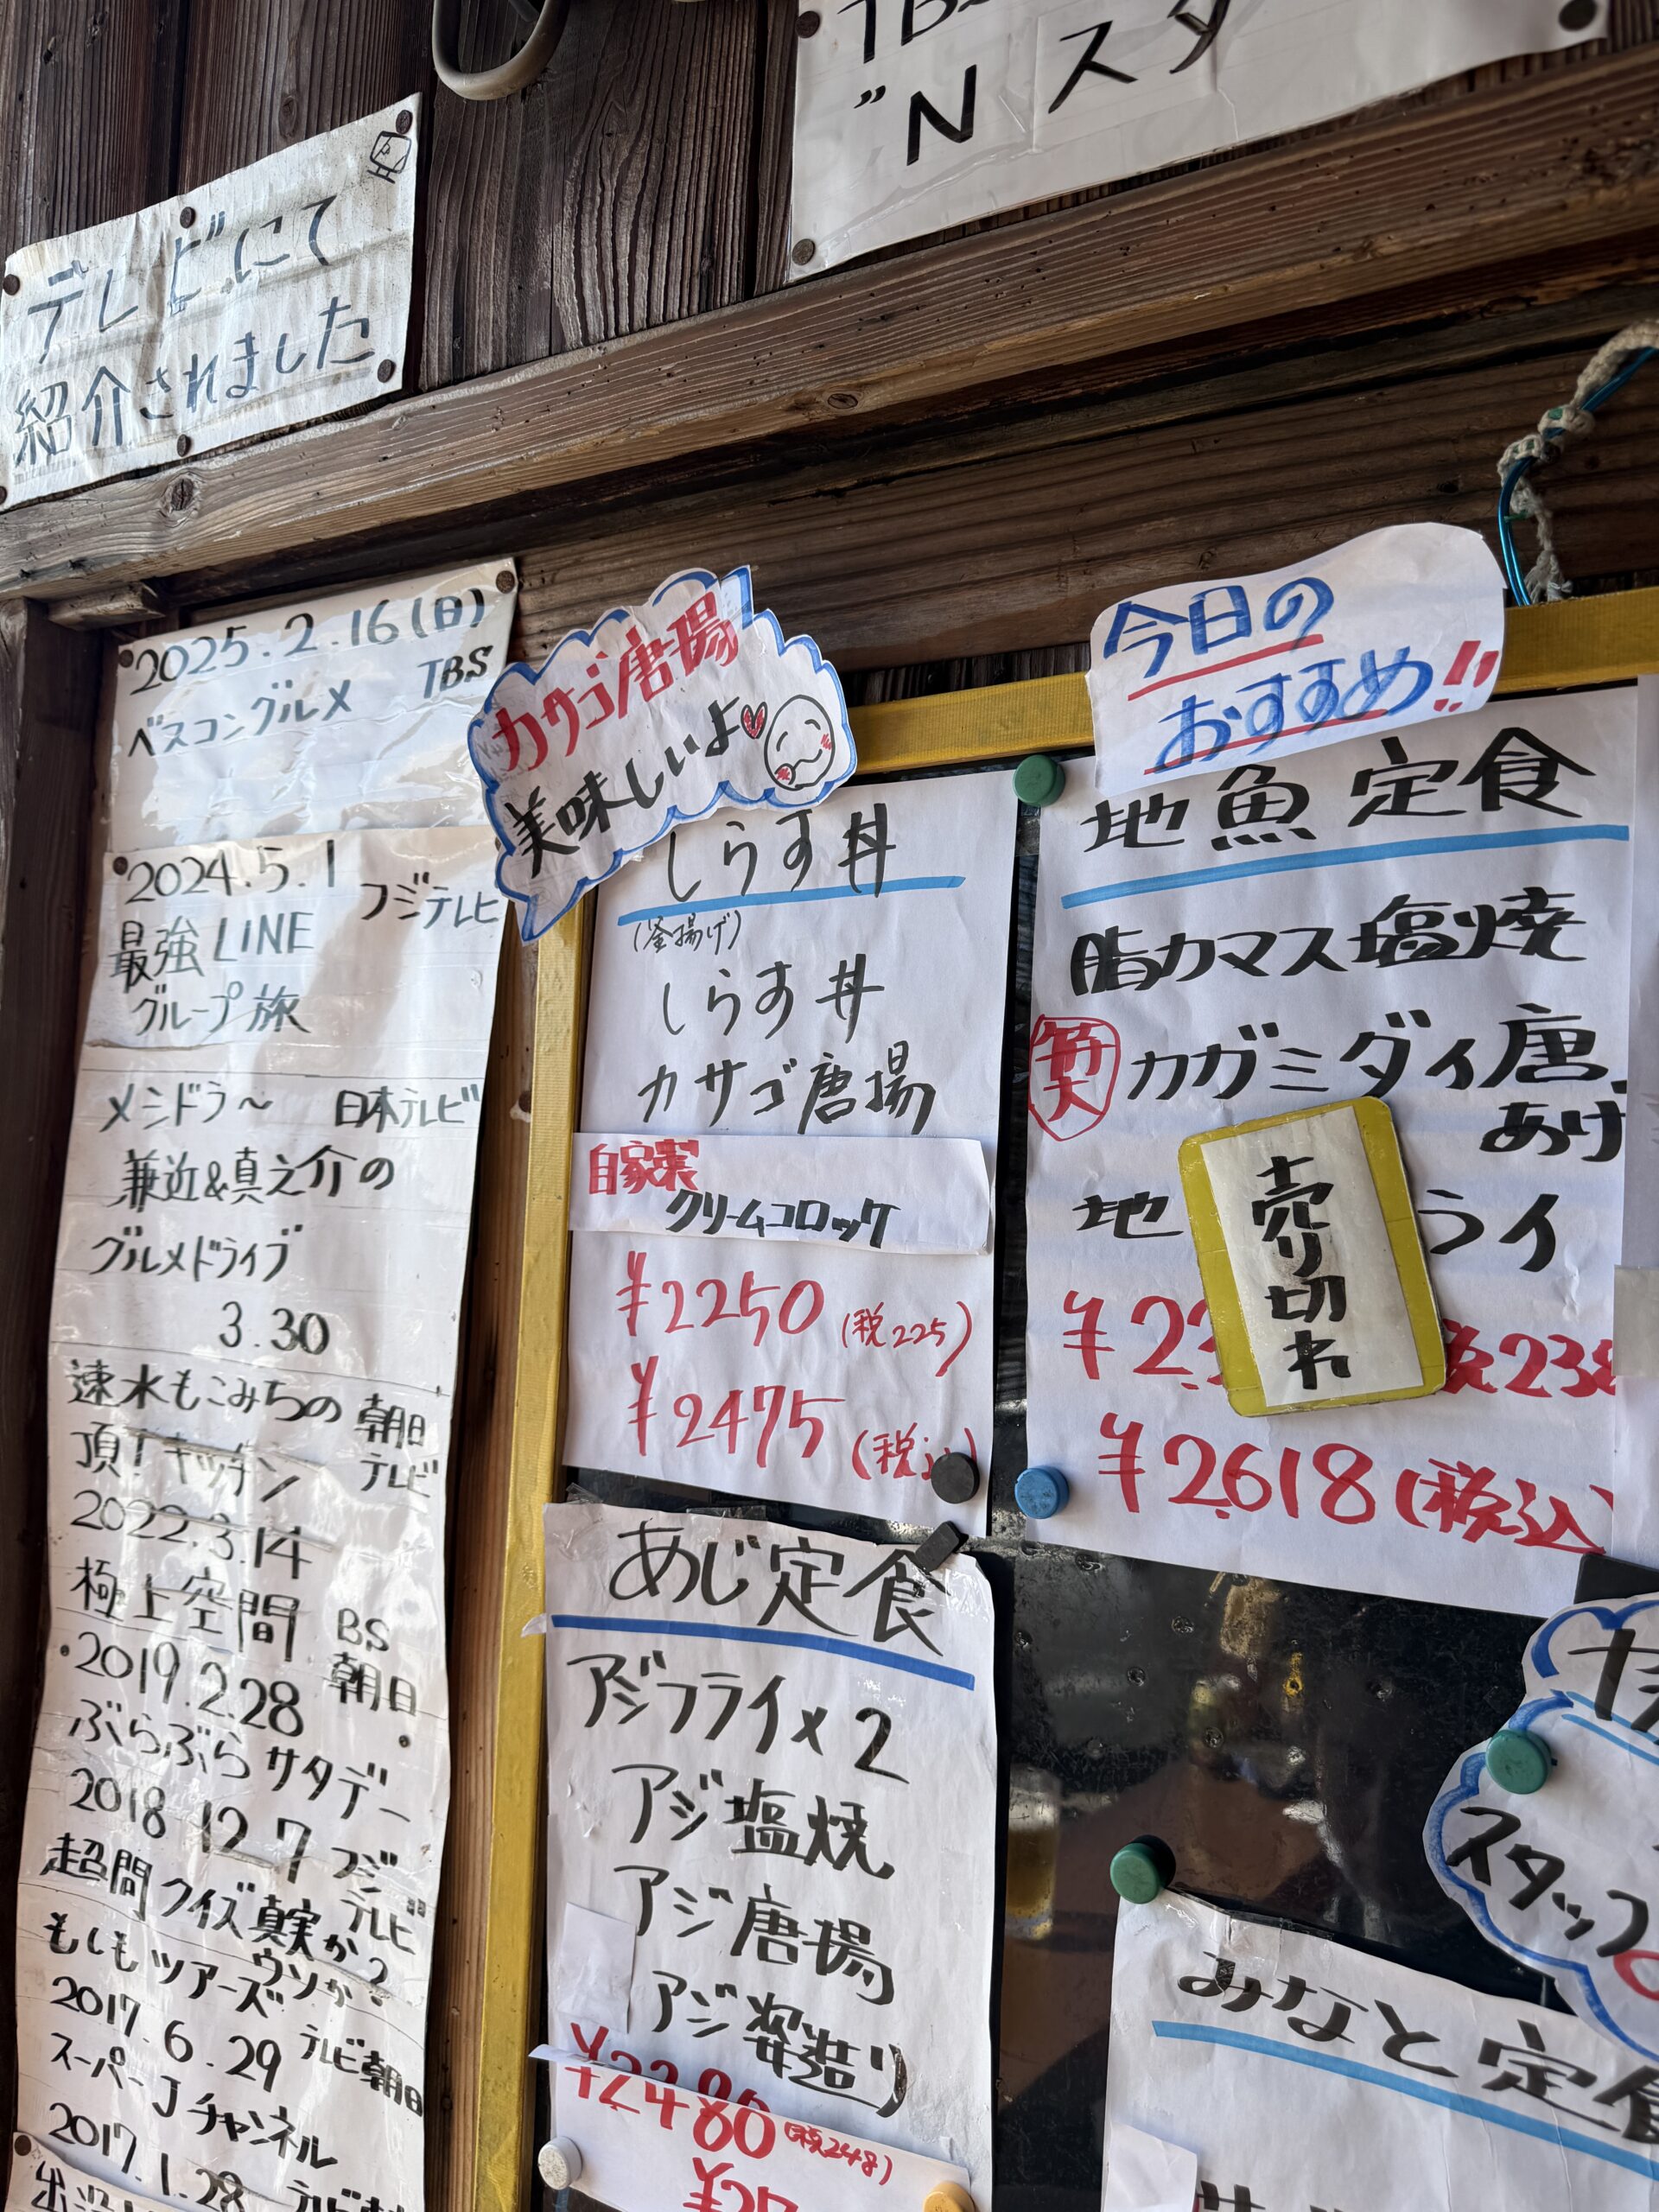 "Nスタ
テレビにて
紹介されました
2025.2.16(日)
TBS
ベスコングルメ
2024.5.1
フジテレビ
最強LINE
グループ旅
メシドラ〜 日本テレビ
兼近&真之介の
グルメドライブ
3.30
速水もこみちの 朝日
頂!キッチン テレビ
2022.3.14
極上空間 BS
朝日
2019.2.28
ぶらぶらサタデー
2018 12.7 フジ
テレビ
超問クイズ真実か?
ウソか?
もしもツアーズ
2017.6.29 テレビ朝日
スーパーJチャンネル
2017.1.28
カサゴ唐揚
美味しいよ
しらす丼
(釜揚げ)
しらす丼
カサゴ唐揚
自家製
クリームコロッケ
¥2250 (税225)
¥2475 (税込)
あじ定食
アジフライ×2
アジ塩焼
アジ唐揚
アジ姿造り
¥2480 (税248)
今日の
おすすめ!!
地魚定食
脂カマス塩焼
カガミダイ唐
あげ
地 ライ
売り切れ
¥2618(税込)
スタッフ
みなと定食